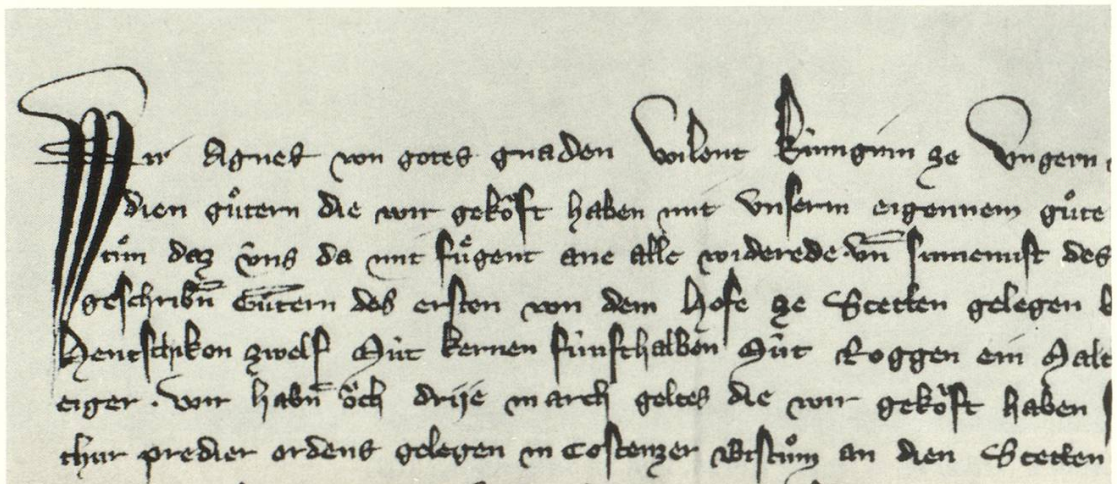 Wir Agnes von gotes gnaden wilent kúnigin ze Vngern
dien gůtern die wir gekǒft haben mit vnserm eigennem gůte
tůn daz v́ns da mit fůgent ane alle widerede vn̄ sumenust des
geschribn̄ Gůtern des ersten von dem Hofe ze Stetten gelegen
Hentschikon zwelf Mút kernen fúnfthalben Mút Roggen ein Malt
eiger . wir habn̄ ǒch drije march geltes die wir gekǒft haben
thur predier ordens gelegen in Costenzer Bistům an dien Stetten